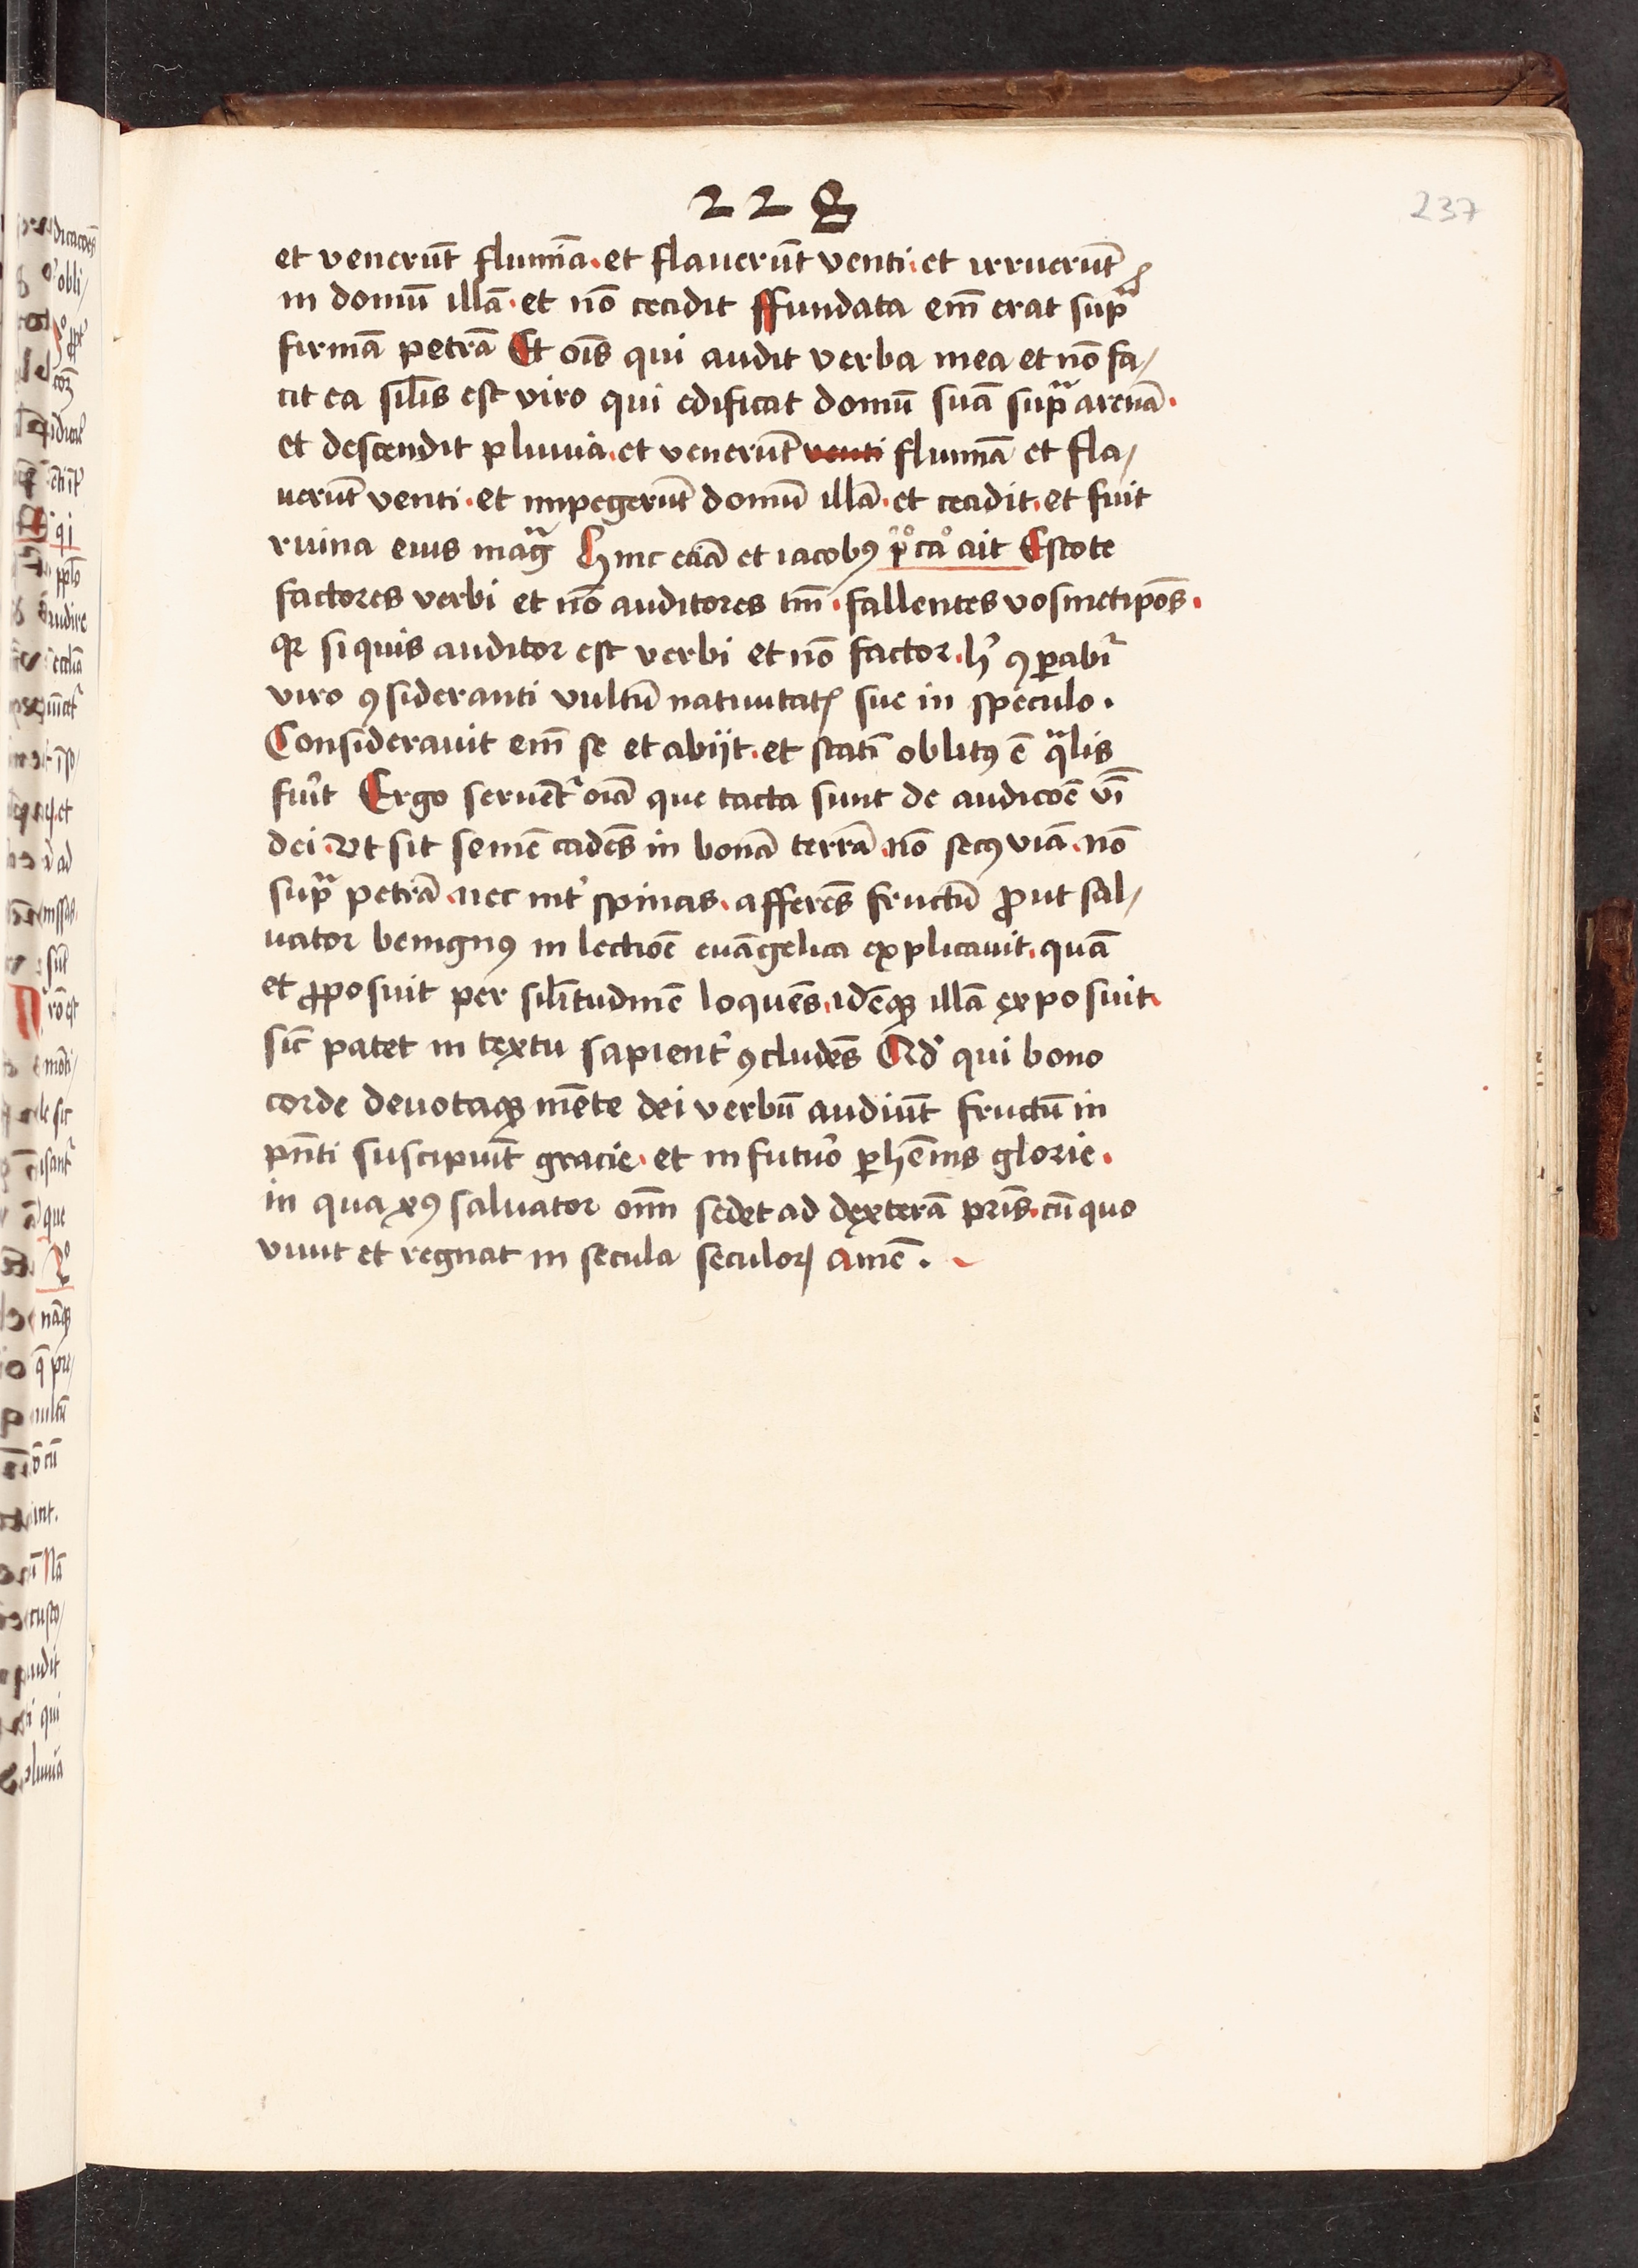 228
237
et venerūt flumīa. et flauerūt venti. et irruerūt
in domū illā. et nō cecidit ffundata em̄ erat supͣ
firmā petrā Et oīs qui audit verba mea et nō fa/
cit ea sil̄is est viro qui edificat domū suā supͣ arenā.
et descendit pluuia. et venerūt venti flumīa et fla/
uerūt venti. et impegerūt domū illā. et cecidit. et fuit
ruina eius magͣ Hinc eciā et iacobꝰ pͦ caͦ ait Estote
factores verbi et nō auditores tm̄. fallentes vosmetipōs.
qꝛ si quis auditor est verbi et nō factor. hʼ ꝯꝑabiʳ
viro ꝯsideranti vultū natiuitatꝭ sue in speculo.
Considerauit em̄ se et abijt. et statī oblitꝰ ē qͣlis
fuʼit Ergo seruentʳ oīa que tacta sunt de audicōe v̄i
dei. Vt sit semē cadēs in bonā terrā. nō secꝰ viā. nō
supͣ petrā. nec intʼ spinas. afferēs fructū ꝓut sal/
uator benignꝰ in lectiōe euāgelica explicauit. quā
et ꝓposuit per sil̄itudinē loquēs. idēqꝫ illā exposuit.
sic̄ patet in textu sapientʼ ꝯcludēs Qd̓ qui bono
corde deuotaqꝫ mēte dei verbū audiūt fructū in
pn̄ti suscipiūt gracie. et in futuʼo ꝑhēnis glorie.
in qua xꝰ saluator om̄i sedet ad dexterā pr̄is. cū quo
viuit et regnat in secula seculoꝝ Amē.